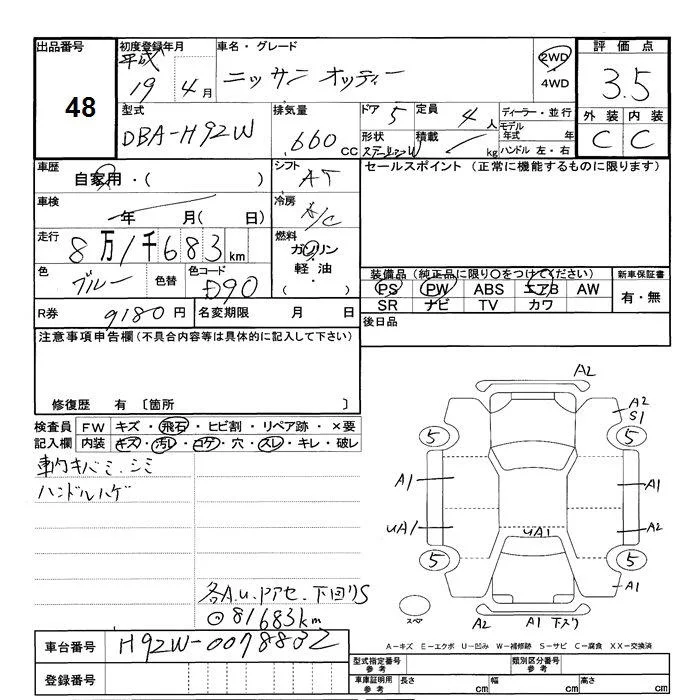 出品番号 初度登録年月 車名・グレード 評価点
48
平成 19 4月
ニッサン オッティー
2WD
4WD
3.5
型式 排気量 ドア 定員 ディーラー・並行 外装 内装
DBA-H92W 660 CC 5 4人 モデル年式 年 C C
形状 積載 kg ハンドル 左・右
ステーションW
車歴 自家用・( ) シフト AT セールスポイント (正常に機能するものに限ります)
車検 年 月( 日) 冷房 A/C
走行 8万1千683km 燃料 ガソリン
軽油
・( )
色 ブルー 色替 色コード D90
装備品 (純正品に限り○をつけてください) 新車保証書
PS PW ABS エアB AW 有・無
SR ナビ TV カワ
R券 9180円 名変期限 月 日 後日品
注意事項申告欄 (不具合内容等は具体的に記入して下さい)
修復歴 有 〔箇所 〕
検査員 FW キズ・飛石・ヒビ割・リペア跡・×要
記入欄 内装 キズ・汚レ・コゲ・穴・スレ・キレ・破レ
車内キバミ.シミ
ハンドルハゲ
各A.u.Pアセ.下回りS
81683km
A2
A2
S1
5 5
A1 A1
uA1 uA1 A2
5 5
A1
スペア A2 A1 下スリ
A-キズ E-エクボ U-凹み W-補修跡 S-サビ C-腐食 XX-交換済
車台番号 H92W-0078832
登録番号
型式指定番号 参考 類別区分番号 参考
車庫証明用 参考 長さ cm 幅 cm 高さ cm